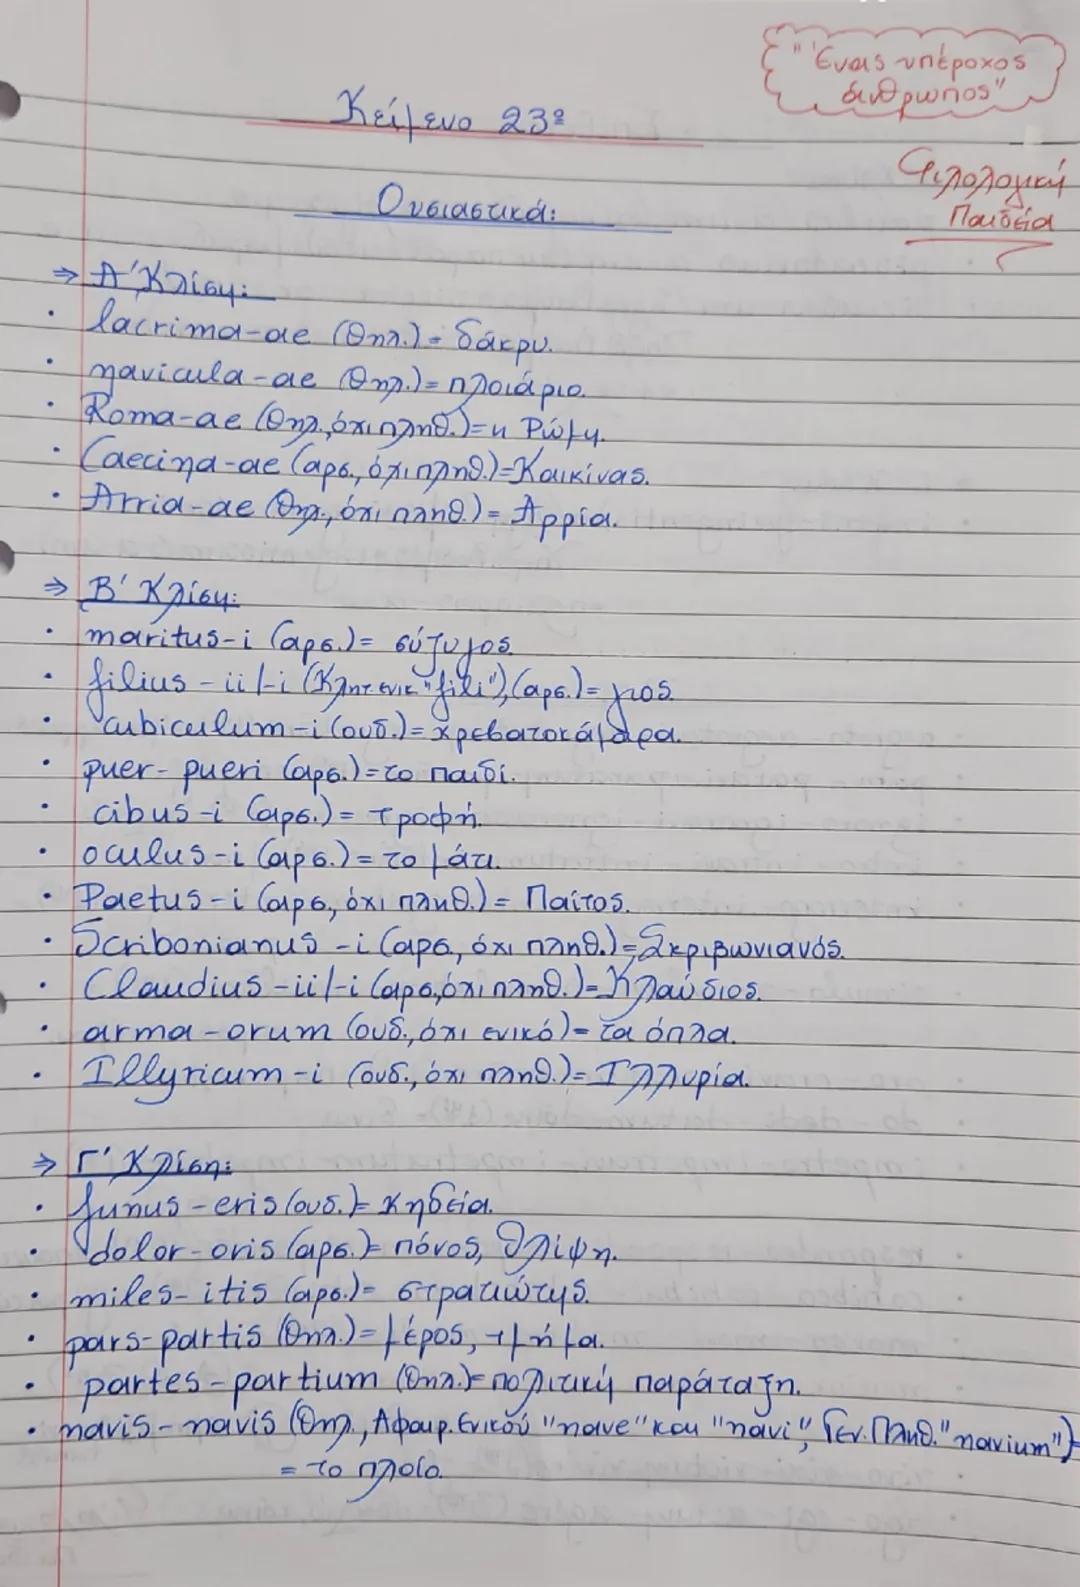 "Ένας υπέροχος
άνθρωπος"
Κείμενο 23º
Φιλολογική
Παιδεία
Ουσιαστικά:
⇒ Α' Κλίση:
• lacrima-ae (θηλ.) = δάκρυ.
• navicula-ae (θηλ.) = πλοιάριο.
• Roma-ae (θηλ., όχι πληθ.) = η Ρώμη.
• Caecina-ae (αρσ., όχι πληθ.) = Καικίνας.
• Arria-ae (θηλ., όχι πληθ.) = Αρρία.
⇒ Β' Κλίση:
• maritus-i (αρσ.) = σύζυγος.
• filius-ii/-i (Κλητ. ενικ "fili"), (αρσ.) = γιος.
• cubiculum-i (ουδ.) = κρεβατοκάμαρα.
• puer-pueri (αρσ.) = το παιδί.
• cibus-i (αρσ.) = τροφή.
• oculus-i (αρσ.) = το μάτι.
• Paetus-i (αρσ., όχι πληθ.) = Παίτος.
• Scribonianus-i (αρσ., όχι πληθ.) = Σκριβωνιανός.
• Claudius-ii/-i (αρσ., όχι πληθ.) = Κλαύδιος.
• arma-orum (ουδ., όχι ενικό) = τα όπλα.
• Illyricum-i (ουδ., όχι πληθ.) = Ιλλυρία.
⇒ Γ' Κλίση:
• funus-eris (ουδ.) = κηδεία.
• dolor-oris (αρσ.) = πόνος, θλίψη.
• miles-itis (αρσ.) = στρατιώτης.
• pars-partis (θηλ.) = μέρος, τμήμα.
• partes-partium (θηλ.) = πολιτική παράταξη.
• navis-navis (θηλ., Αφαιρ. Ενικού "nave" και "navi", Γεν. Πληθ. "navium")
= το πλοίο.